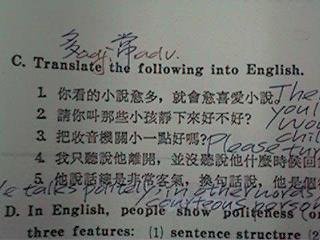 多adj 常adv.
C. Translate the following into English.
1. 你看的小說愈多，就會愈喜愛小說。The
2. 請你叫那些小孩靜下來好不好?
3. 把收音機關小一點好嗎? Please tur
4. 我只聽說他離開，並沒聽說他什麼時候回
5. 他說話總是非常客氣，換句話說，他是個
talks politely in other words
courteous person
D. In English, people show politeness or
three features: (1) sentence structure (2